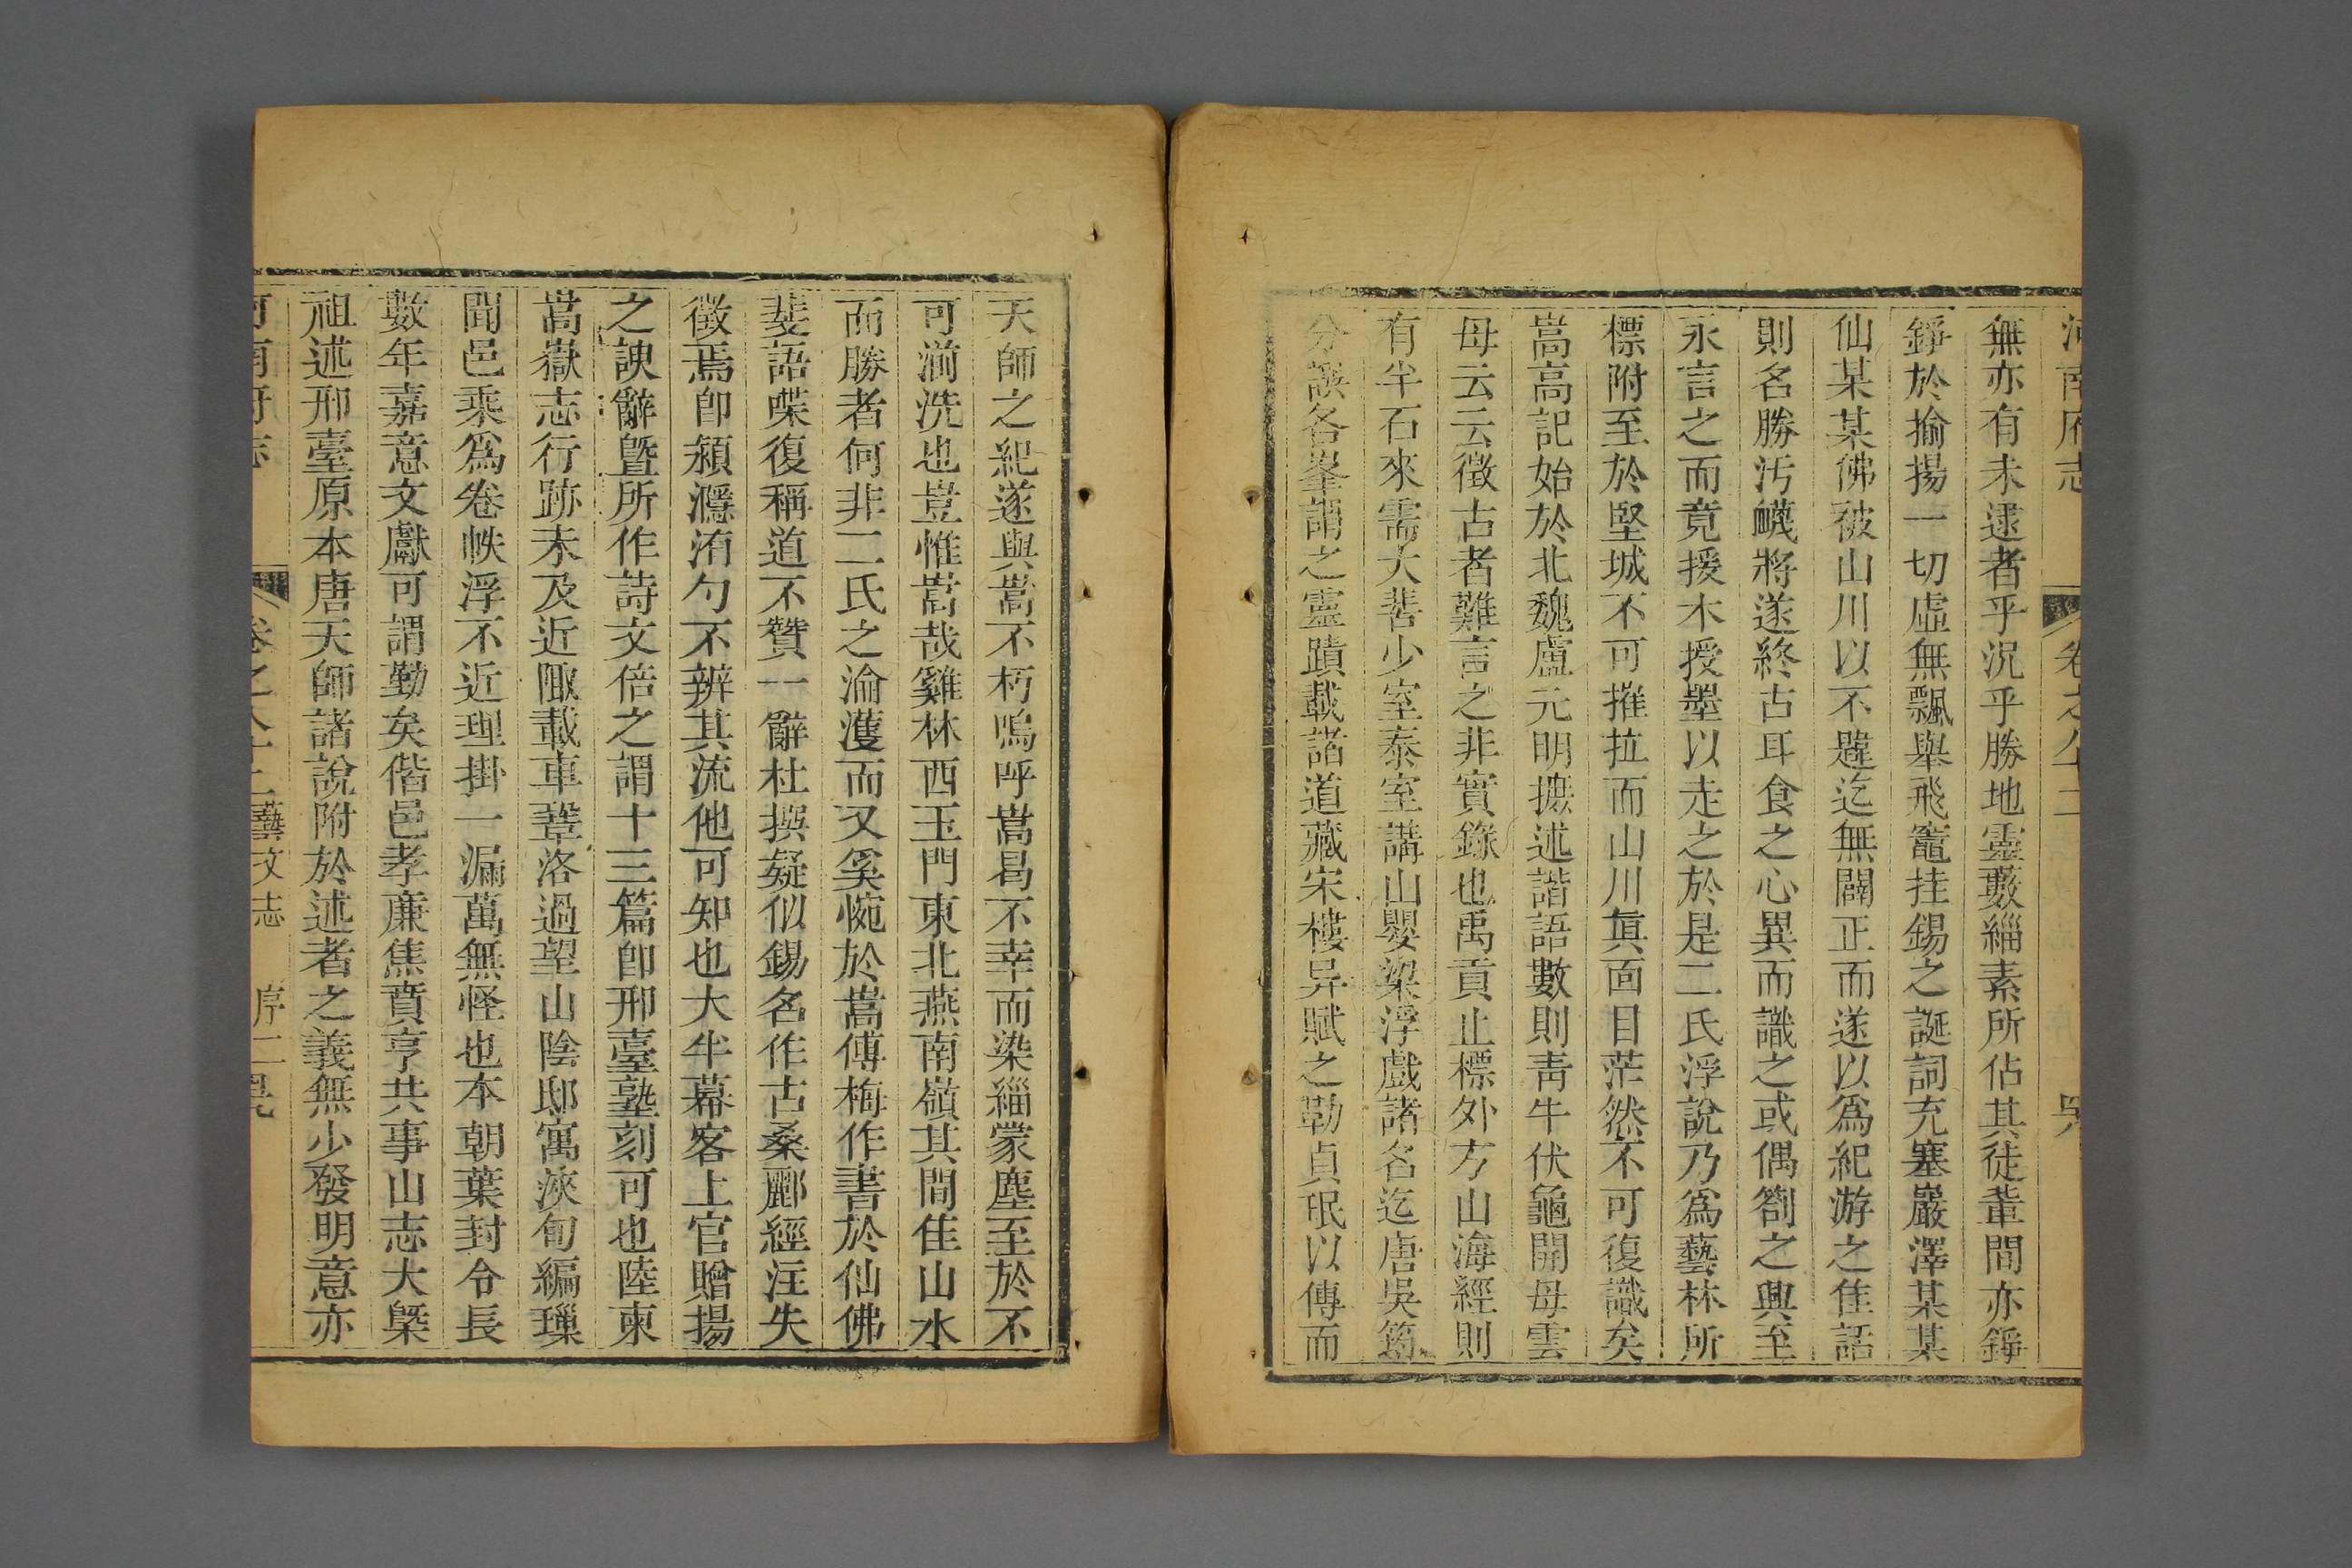 河南府志 卷之八十二
無亦有未逮者乎況乎勝地靈藪緇素所佔其徒輩間亦錚
錚於揄揚一切虛無飄舉飛竈挂錫之誕詞充塞巖澤某某
仙某某佛被山川以不韙迄無闢正而遂以爲紀游之佳話
則名勝汚衊將遂終古耳食之心異而識之或偶劄之興至
永言之而竟援木授墨以走之於是二氏浮說乃爲藝林所
標附至於堅城不可推拉而山川眞面目茫然不可復識矣
嵩高記始於北魏盧元明摭述諧語數則靑牛伏龜開母雲
母云云徵古者難言之非實錄也禹貢止標外方山海經則
有半石來需大𦵟少室泰室講山嬰梁浮戲諸名迄唐吳筠
分譔各峯謂之靈蹟載諸道藏宋樓异賦之勒貞珉以傳而
天師之紀遂與嵩不朽嗚呼嵩曷不幸而染緇蒙塵至於不
可湔洗也豈惟嵩哉雞林西玉門東北燕南嶺其間佳山水
而勝者何非二氏之淪濩而又奚惋於嵩傅梅作書於仙佛
斐語喋復稱道不贊一辭杜撰疑似錫名作古桑酈經注失
徵焉卽潁濦洧勺不辨其流他可知也大半幕客上官贈揚
之諛辭曁所作詩文倍之謂十三篇卽邢臺塾刻可也陸柬
嵩嶽志行跡未及近陬載車鞏洛過望山陰邸寓浹旬編璅
聞邑乘爲卷帙浮不近理掛一漏萬無怪也本朝葉封令長
數年嘉意文獻可謂勤矣偕邑孝廉焦賁亨共事山志大槩
祖述邢臺原本唐天師諸說附於述者之義無少發明意亦
河南府志 卷之八十二 藝文志 序二